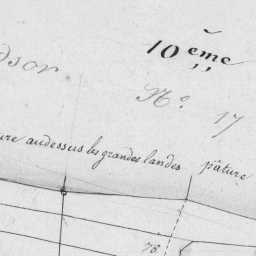 10 ème
N° 17
audessus les grandes landes pâture
76